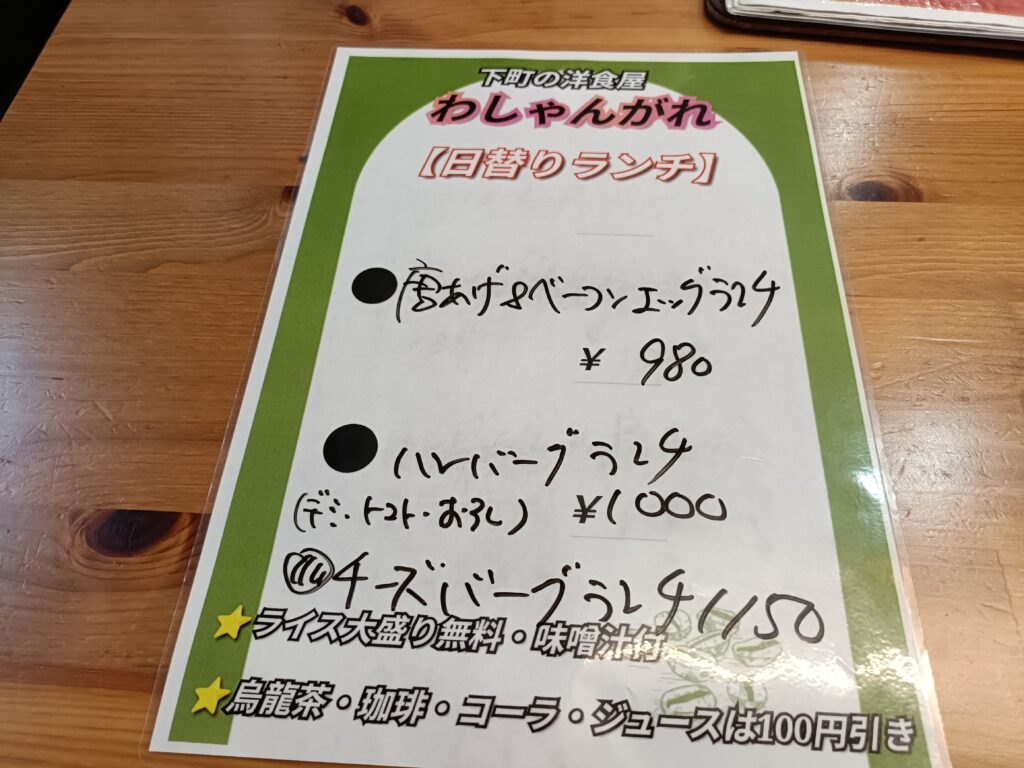 下町の洋食屋
わしゃんがれ
【日替りランチ】
●唐あげ&ベーコンエッグランチ
¥ 980
●ハンバーグランチ
(デミ・トマト・おろし) ¥1000
チーズバーグランチ 1150
★ライス大盛り無料・味噌汁付
★烏龍茶・珈琲・コーラ・ジュースは100円引き